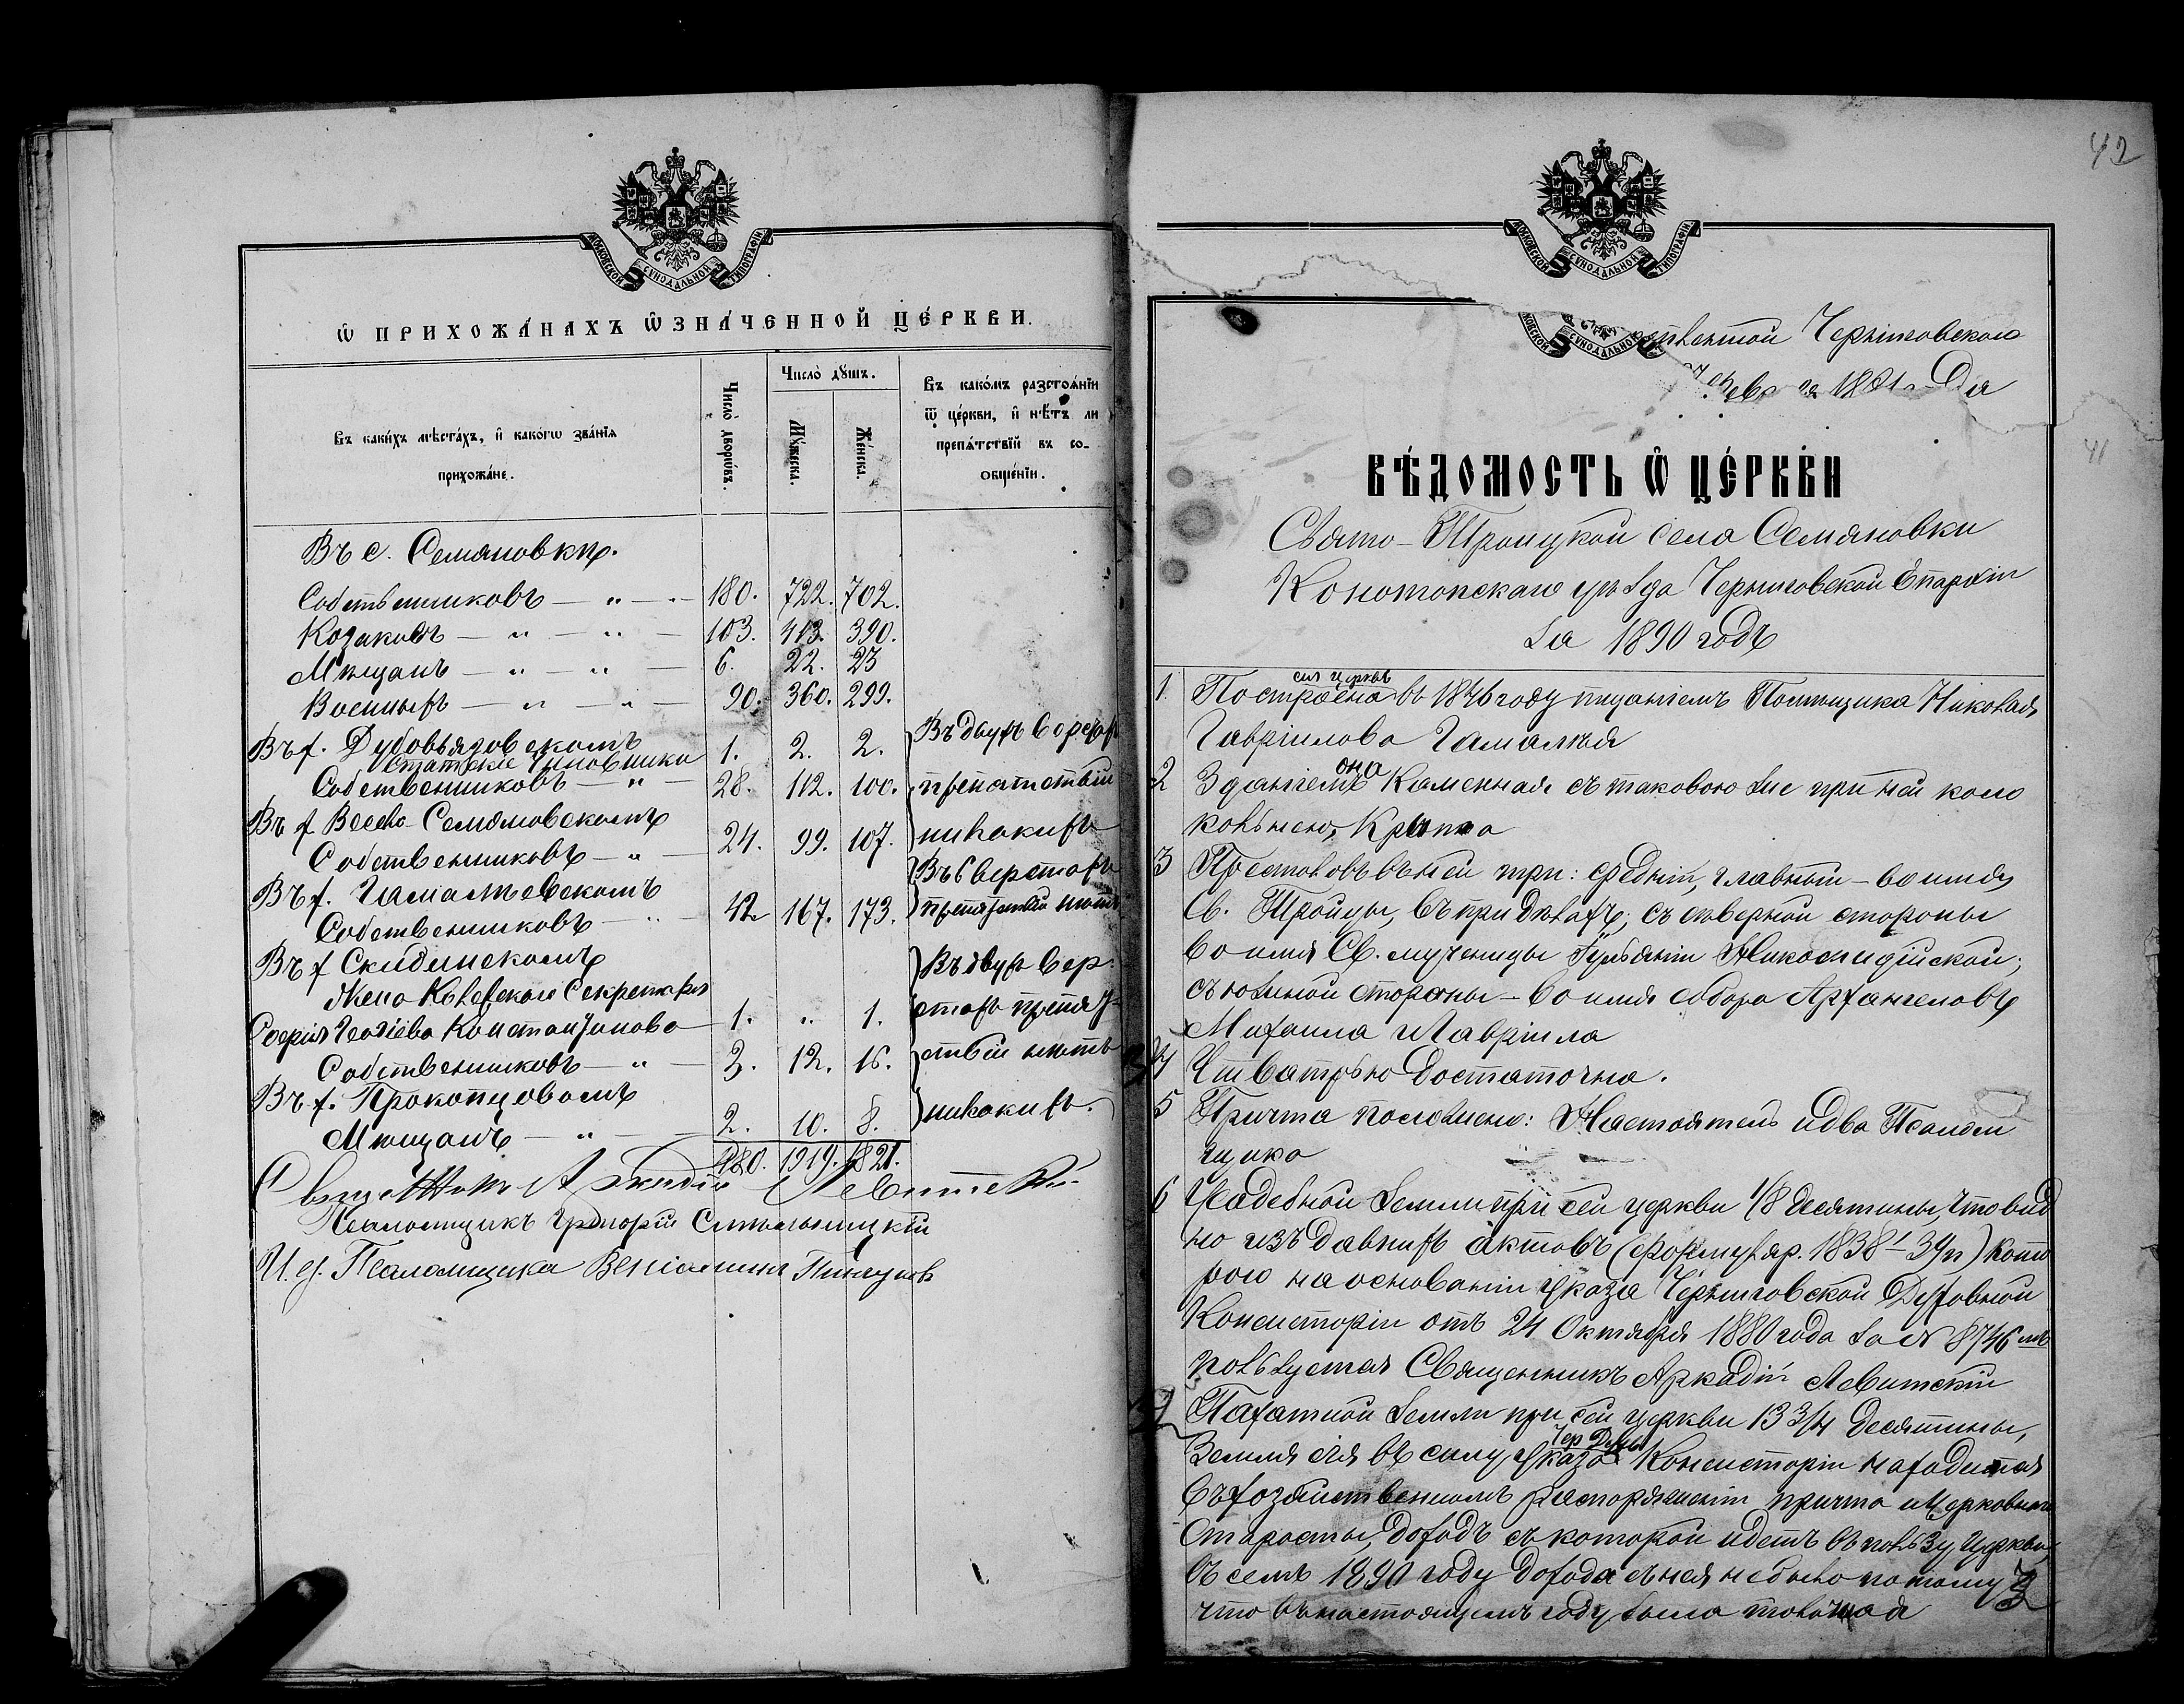 МОСКОВСКОЙ СѴНОДАЛЬНОЙ ТИПОГРАФІИ
Ѡ ПРИХОЖА́НАХЪ Ѡ҆ЗНА́ЧЕННОЙ ЦЕ́РКВИ.
Въ каки́хъ мѣста́хъ, и҆ како́гѡ зва́нїѧ прихожа́не.
Число̀ дворѡ́въ.
Число̀ дꙋ́шъ.
Мꙋ́жеска.
Же́нска.
Въ како́мъ разстоѧ́нїи ѿ це́ркви, и҆ нѣ́тъ ли препѧ́тствїй въ со- ѻбще́нїи.
Въ с. Семяновкѣ.
Собственниковъ — " — 180. 722. 702.
Козаковъ — " — " — 103. 413. 390.
Мѣщанъ — " — " — 6. 22. 23
Военныхъ — " — " — 90. 360. 299.
Въ х. Дубовязовскомъ
Статскіе Чиновники 1. 2. 2. Въ двухъ верстахъ
Собственниковъ — " — 28. 112. 100. препятствій
Въ х Весело-Семяновскомъ никакихъ
Собственниковъ — " — 24. 99. 107.
Въ х. Гамалѣевскомъ Въ 6 верстахъ
Собственниковъ — " 42 167. 173. препятствій нѣтъ
Въ х Скидинскомъ Въ двухъ вер-
Жена Колежскаго Секретаря
Софія Константинова 1. " 1. стахъ препят-
Собственниковъ — " — 2. 12. 16. ствій нѣтъ
Въ х. Прокопцовомъ никакихъ.
Мѣщанъ — " — 2. 10. 8.
480. 1919. 1821.
Священникъ Аркадій Левитскій
Псаломщикъ Григорій
И. д. Псаломщика Веніаминъ
42
МОСКОВСКОЙ СѴНОДАЛЬНОЙ ТИПОГРАФІИ
Черниговского
41
ВѢ́ДОМОСТЬ Ѡ ЦЕ́РКВИ
Свято-Троицкой села Семяновки
Конотопскаго уѣзда Черниговской Епархіи
за 1890 годъ
1 Построена сія церквь въ 1846 году тщаніемъ Помѣщика Николая
Гавріилова Гамалѣя
2 Зданіемъ она Каменная съ таковою же при ней коло
кольнею, Крѣпка
3 Престоловъ въ ней три: средній, главный — во имя
Св. Троицы, въ придѣлахъ; съ сѣверной стороны
во имя Св. мученицы Іуліаніи Никомидійской;
съ южной стороны — во имя собора Архангеловъ
Михаила и Гавріила
4 Утварью достаточна.
5 Причта положено: Настоятель и два Псалом
щика
6 Усадебной земли при сей церкви 1/8 десятины, что вид
но изъ давнихъ актовъ (формуляр. 1838 – 39 г) кото
рою на основаніи указа Черниговской Духовной
Консисторіи отъ 24 Октября 1880 года за № 8746 мъ
пользуется Священникъ Аркадій Левитскій
7 Пахатной земли при сей церкви 13 3/4 десятины,
Земля сія въ силу указа Чер Духов Консисторіи находится
въ хозяйственномъ распоряженіи причта и Церковнаго
Старосты, доходъ съ которой идетъ въ пользу Церкви,
въ семъ 1890 году дохода съ нея не было потому
что въ настоящемъ году была